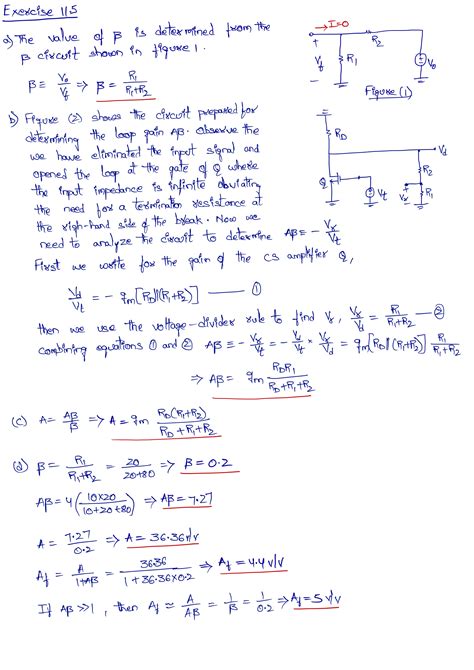 Exercise 11.5
a) The value of β is determined from the
β circuit shown in figure 1.
β ≡ Vo/Vf ⇒ β = R1/(R1+R2)
→I=0
+ Vf - R1 R2 Vo
Figure (1)
b) Figure (2) shows the circuit prepared for
determining the loop gain Aβ. Observe the
we have eliminated the input signal and
opened the loop at the gate of Q where
the input impedance is infinite obviating
the need for a termination resistance at
the righ-hand side of the break. Now we
need to analyze the circuit to determine Aβ ≡ - Vr/Vt
RD Vd R2 Q Vt Vr R1
First we write for the gain of the CS amplifier Q,
Vd/Vt = - gm[RD||(R1+R2)] — ①
then we use the voltage-divider rule to find Vr, Vr/Vd = R1/(R1+R2) — ②
combining equations ① and ② Aβ ≡ - Vr/Vt = - Vd/Vt × Vr/Vd = gm[RD||(R1+R2)] R1/(R1+R2)
⇒ Aβ = gm RDR1/(RD+R1+R2)
(c) A = Aβ/β ⇒ A = gm RD(R1+R2)/(RD+R1+R2)
(d) β = R1/(R1+R2) = 20/(20+80) ⇒ β = 0.2
Aβ = 4(10×20/(10+20+80)) ⇒ Aβ = 7.27
A = 7.27/0.2 ⇒ A = 36.36 V/V
Af = A/(1+Aβ) = 36.36/(1+36.36×0.2) ⇒ Af = 4.4 V/V
If Aβ >> 1, then Af ≃ A/Aβ = 1/β = 1/0.2 ⇒ Af = 5 V/V